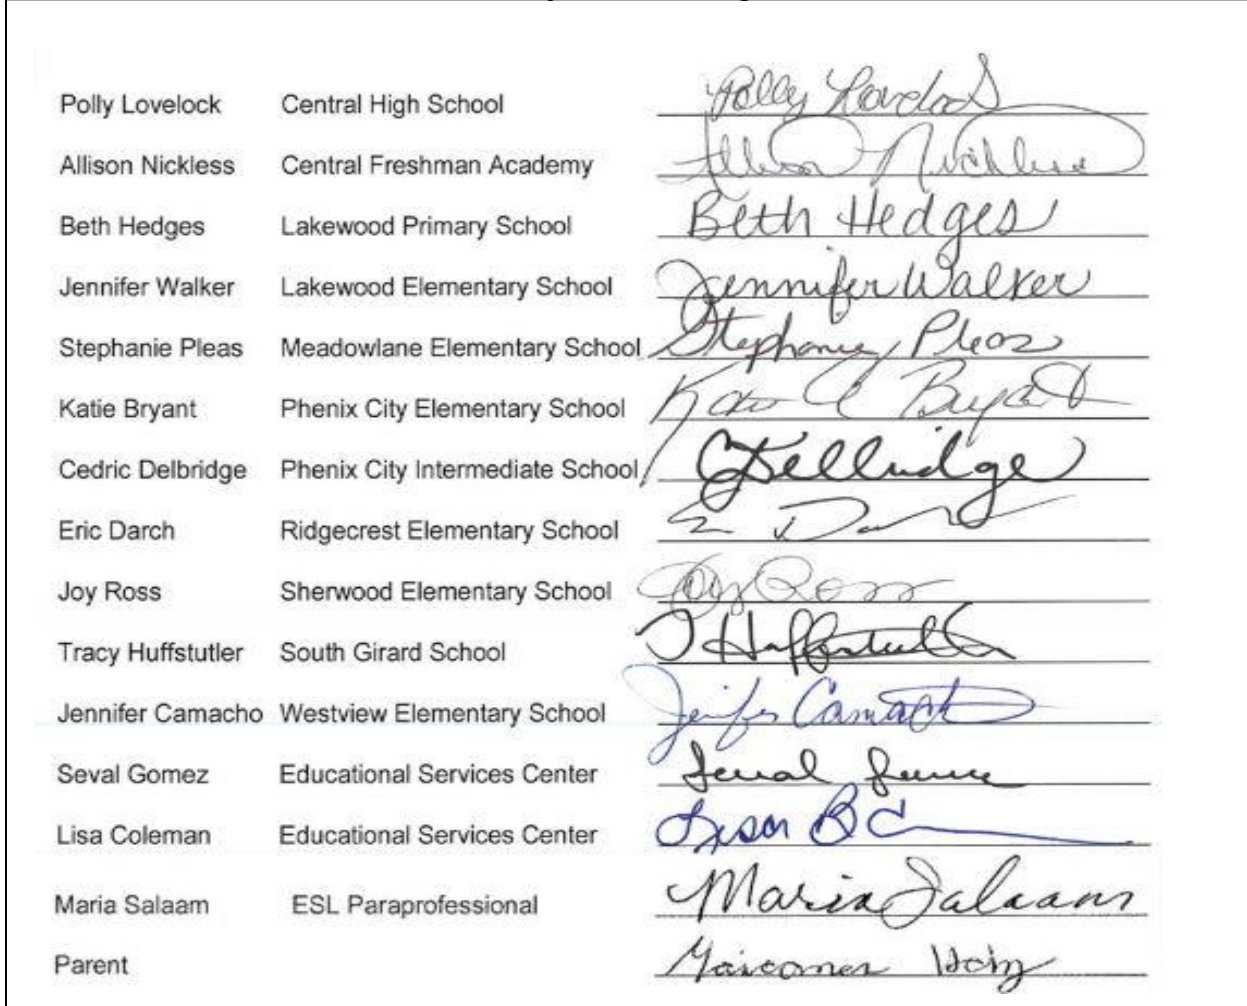 Polly Lovelock Central High School Polly Lovelock
Allison Nickless Central Freshman Academy Allison Nickless
Beth Hedges Lakewood Primary School Beth Hedges
Jennifer Walker Lakewood Elementary School Jennifer Walker
Stephanie Pleas Meadowlane Elementary School Stephanie Pleas
Katie Bryant Phenix City Elementary School Bryant
Cedric Delbridge Phenix City Intermediate School CDelbridge
Eric Darch Ridgecrest Elementary School
Joy Ross Sherwood Elementary School Joy Ross
Tracy Huffstutler South Girard School T Huffstutler
Jennifer Camacho Westview Elementary School Jenifer Camacho
Seval Gomez Educational Services Center Seval
Lisa Coleman Educational Services Center Lisa B C
Maria Salaam ESL Paraprofessional Maria Salaam
Parent